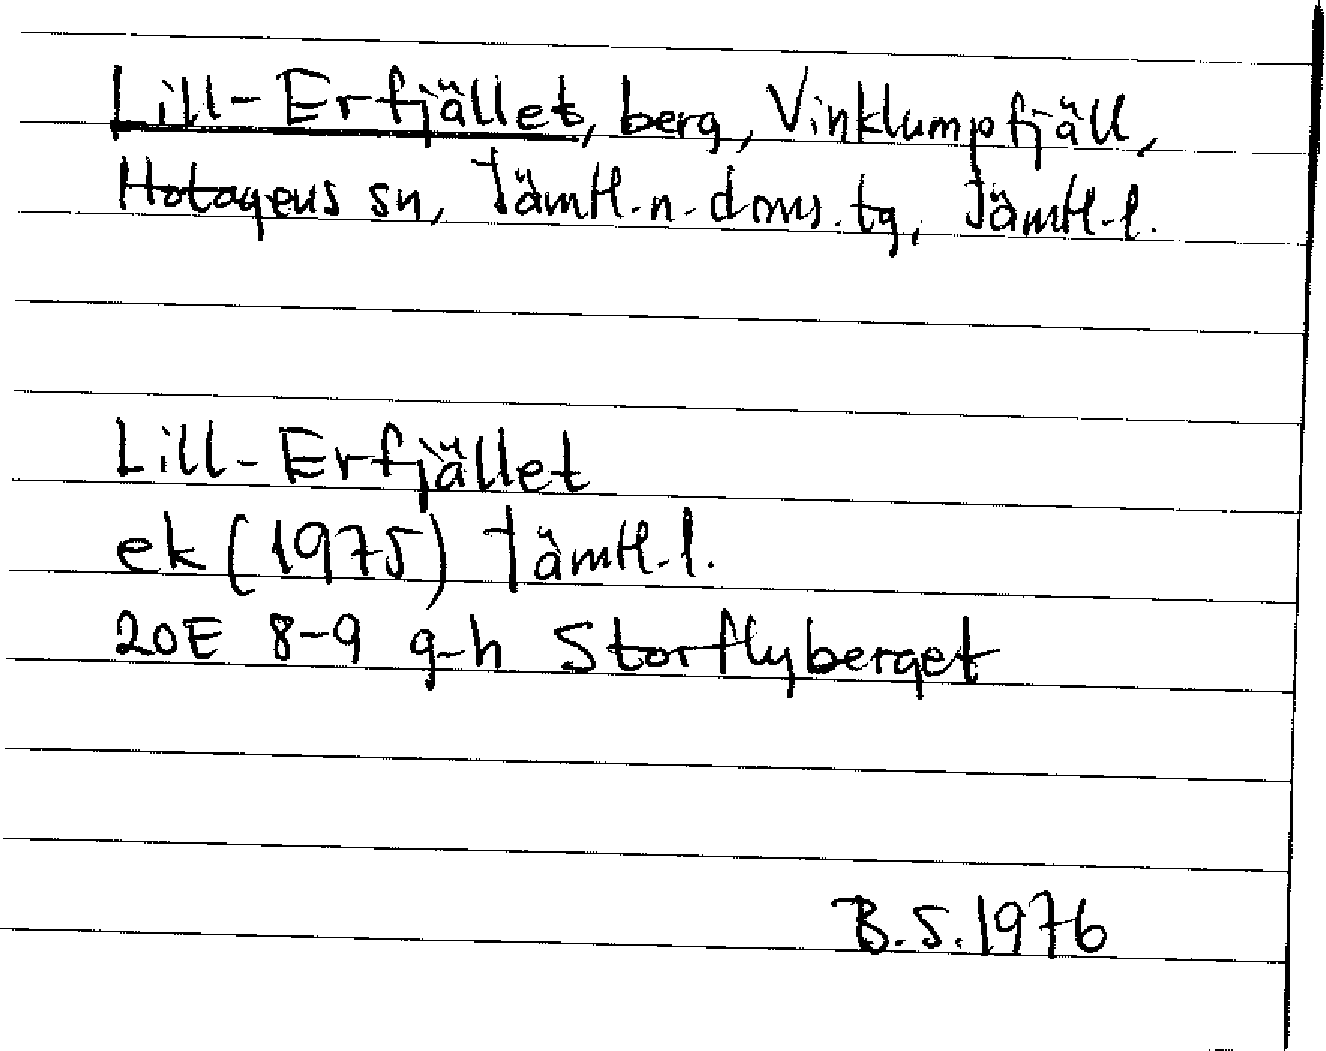 Lill-Erfjället, berg, Vinklumpfjäll,
Hotagens sn, Jämtl.n.doms.tg, Jämtl.l.
Lill-Erfjället
ek (1975) Jämtl.l.
20E 8-9 g-h Storflyberget
B.S. 1976